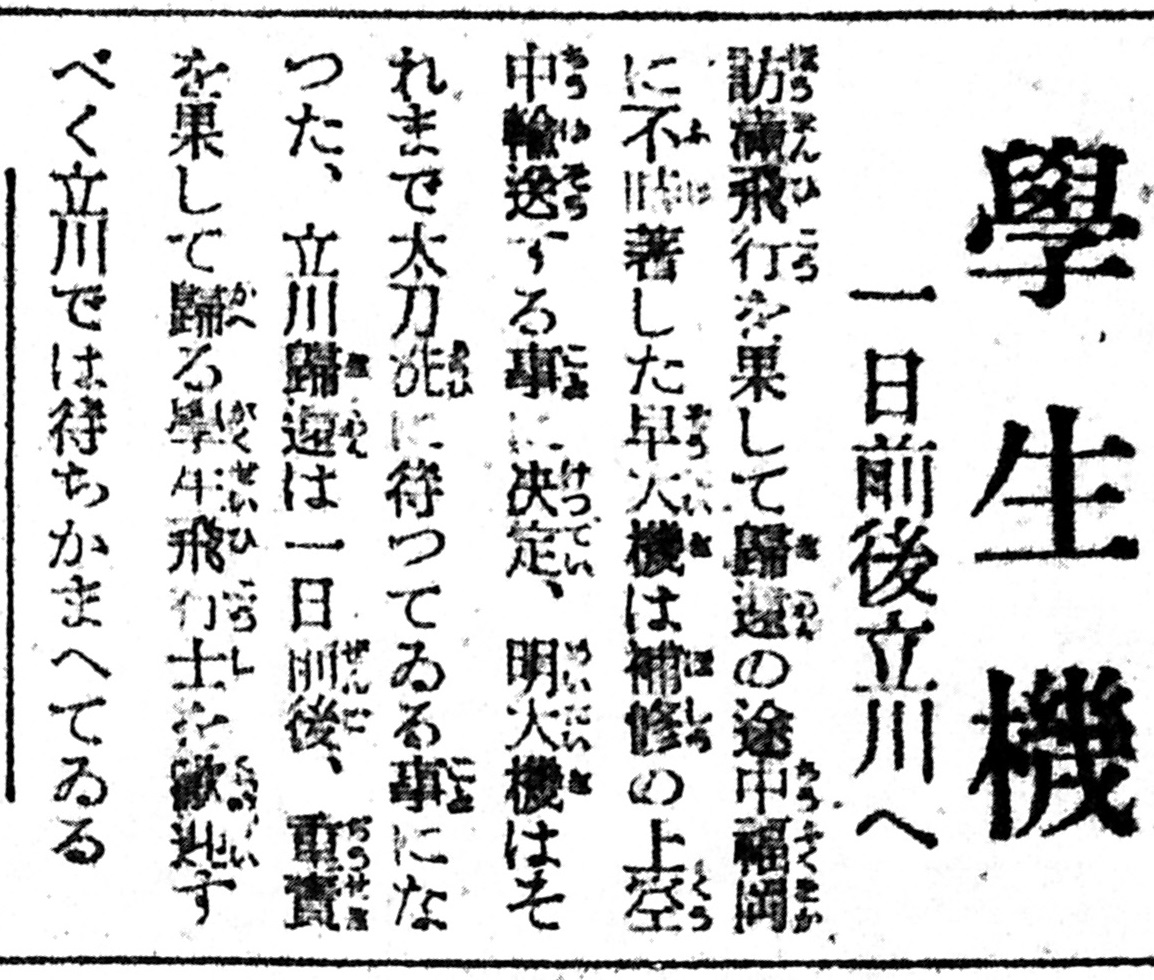 學生機
一日前後立川へ
訪滿飛行を果して歸還の途中福岡
に不時著した早大機は補修の上空
中輸送する事に決定、明大機はそ
れまで太刀洗に待つてゐる事にな
つた、立川歸還は一日前後、重責
を果して歸る學生飛行士を歡迎す
べく立川では待ちかまへてゐる